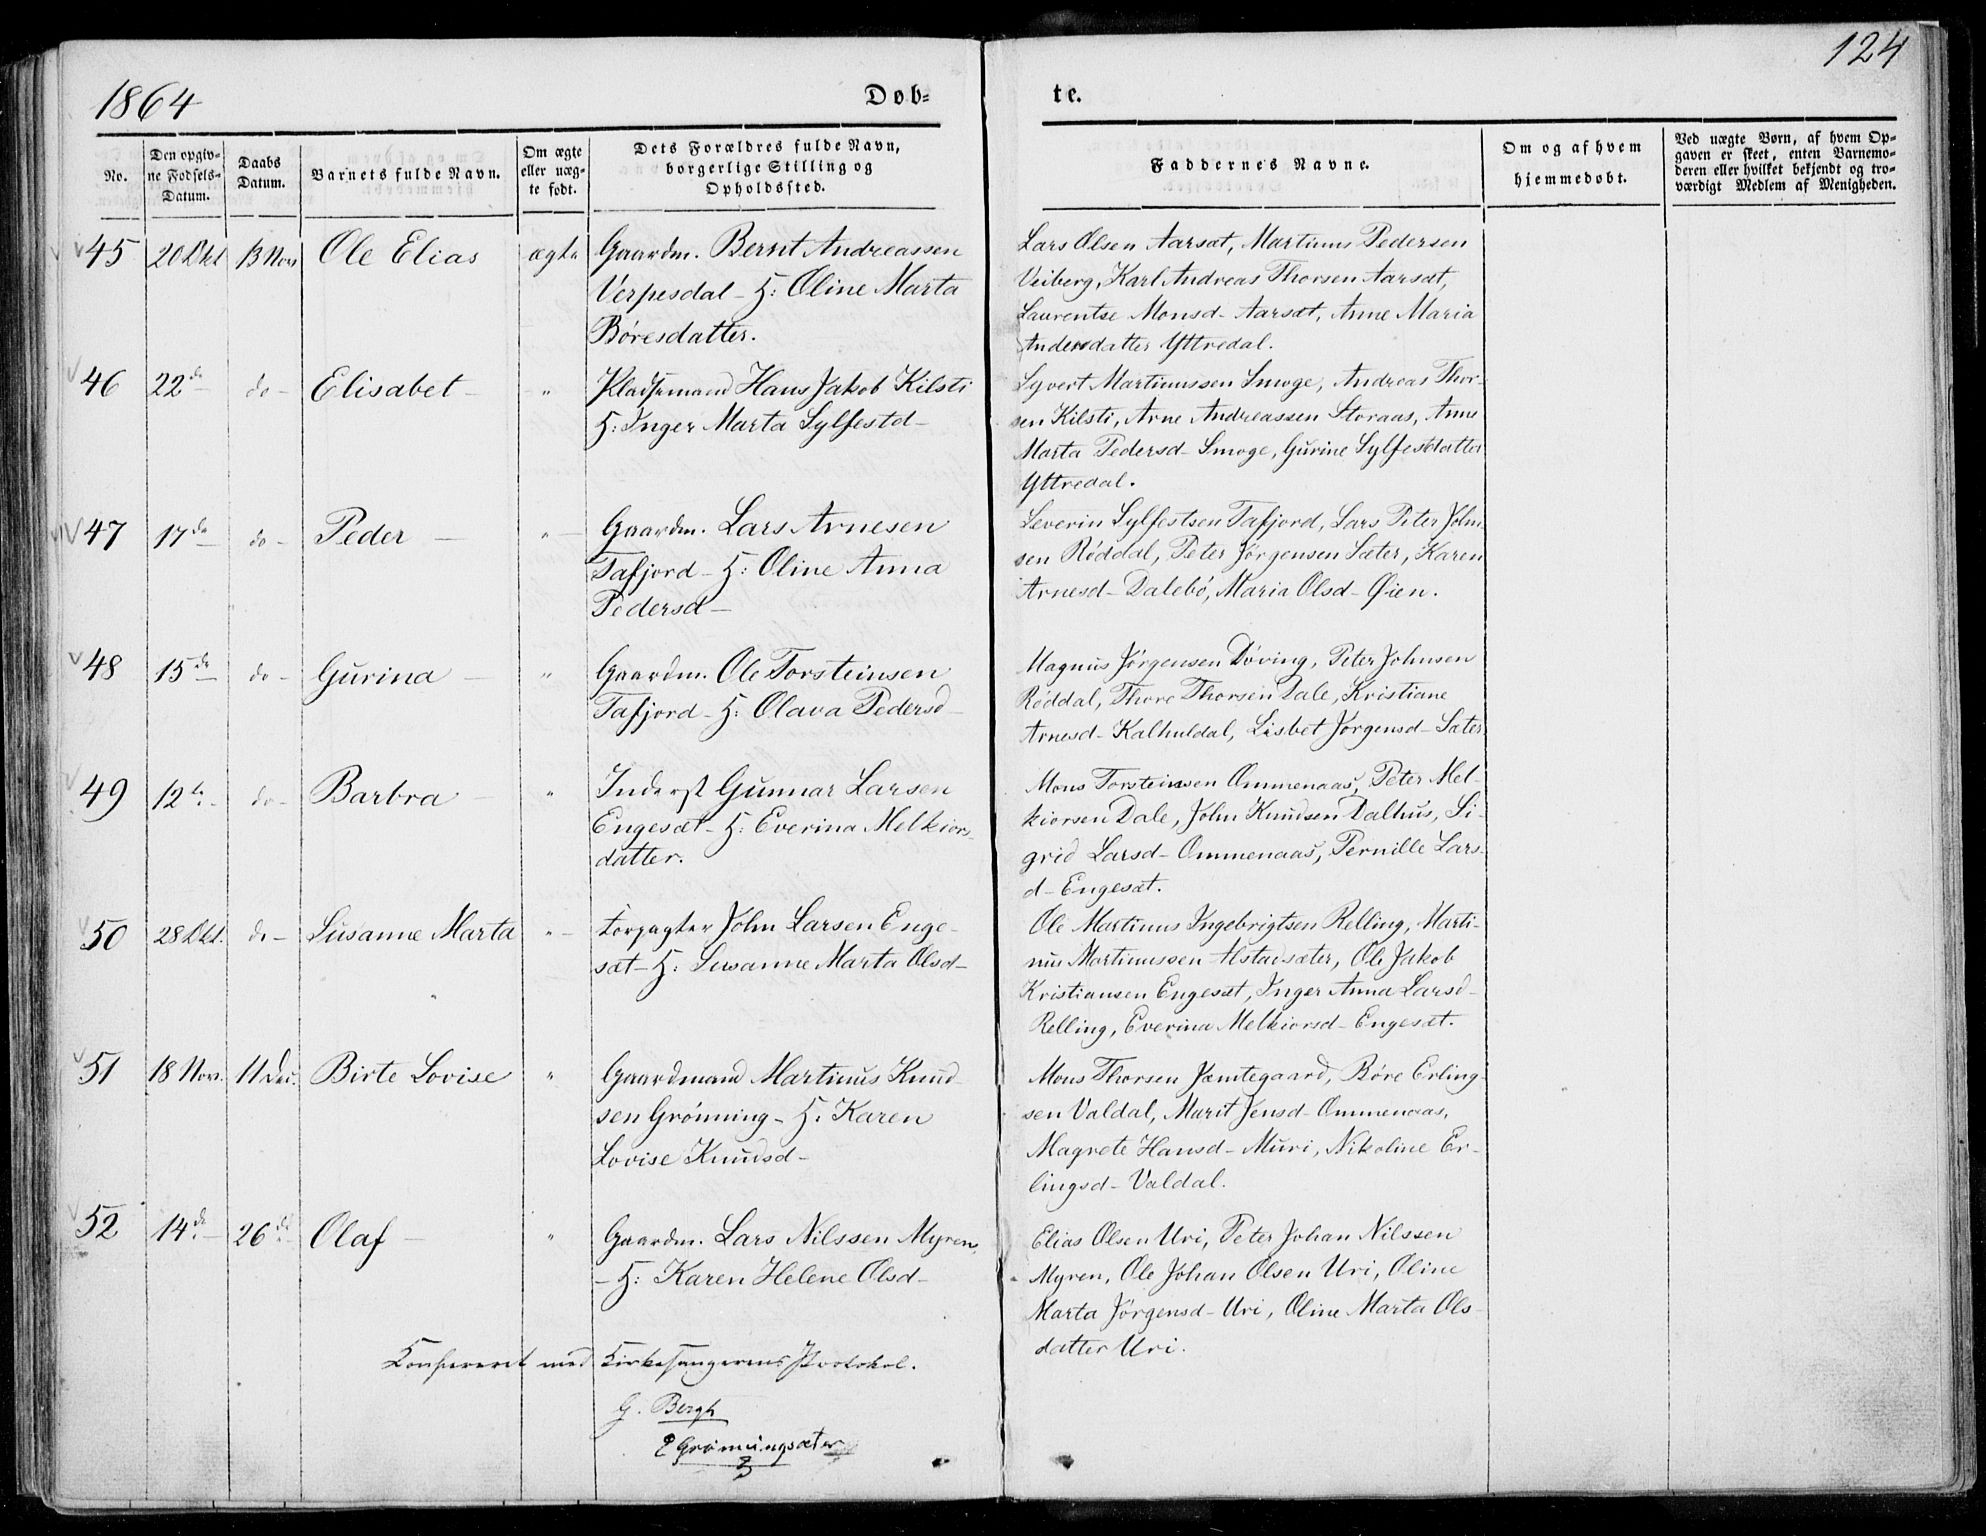 1864
Døb=
te.
124
No.
Den opgiv=
ne Fødsels=
Datum.
Daabs
Datum.
Barnets fulde Navn.
Om ægte
eller uæg=
te født.
Dets Forældres fulde Navn,
borgerlige Stilling og
Opholdssted.
Faddernes Navne.
Om og af hvem
hjemmedøbt.
Ved uægte Børn, af hvem Op=
gaven er skeet, enten Barnemo=
deren eller hvilket bekjendt og tro=
værdigt Medlem af Menigheden.
45 20 Okt 13 Nov Ole Elias ægte
Gaardm. Bernt Andreassen
Verpesdal - H: Oline Marta
Børesdatter.
Lars Olsen Aarsæt, Martinus Pedersen
Veiberg, Karl Andreas Thorsen Aarsæt,
Laurentse Monsd- Aarsæt, Anne Maria
Andersdatter Yttredal.
46 22 do do - Elisabet - "
Pladsemand Hans Jakob Kilsti
H: Inger Marta Sylfestd-
Syvert Martinussen Smoge, Andreas Thor-
sen Kilsti, Arne Andreassen Storaas, Anne
Marta Pedersd- Smoge, Gurine Sylfestdatter
Yttredal.
47 17 do do - Peder - "
Gaardm. Lars Arnesen
Tafjord - H: Oline Anna
Pedersd-
Severin Sylfestsen Tafjord, Lars Peter John-
sen Røddal, Peter Jørgensen Sæter, Karen
Arnesd- Dalebø, Maria Olsd- Øien.
48 15 do do - Gurina - "
Gaardm. Ole Torsteinsen
Tafjord - H: Olava Pedersd-
Magnus Jørgensen Døving, Peter Johnsen
Røddal, Thore Thorsen Dale, Kristiane
Arnesd- Kalhuldal, Lisbet Jørgensd- Sæter
49 12 do do - Barbra - "
Inderst Gunnar Larsen
Engesæt - H: Everina Melkiors-
datter.
Mons Torsteinsen Ommenaas, Peter Mel-
kiorsen Dale, John Knudsen Dalhus, Si-
grid Larsd- Ommenaas, Pernille Lars-
d- Engesæt.
50 28 Okt. do - Susanne Marta "
Forpagter John Larsen Enge-
sæt - H: Susanne Marta Olsd-
Ole Martinus Ingebrigtsen Relling, Marti-
nus Martinussen Alstadsæter, Ole Jakob
Kristiansen Engesæt, Inger Anna Larsd-
Relling, Everina Melkiorsd- Engesæt.
51 18 Nov. 11 Dec. Birte Lovise "
Gaardmand Martinus Knud-
sen Grønning - H. Karen
Lovise Knudsd-
Mons Thorsen Jæmtegaard, Børe Erling-
sen Valdal, Marit Jensd- Ommenaas,
Magrete Hansd- Muri, Nikoline Er-
lingsd- Valdal.
52 14 do 26 do Olaf - "
Gaardm. Lars Nilssen Myren,
- H: Karen Helene Olsd-
Elias Olsen Uri, Peter Johan Nilssen
Myren, Ole Johan Olsen Uri, Oline
Marta Jørgensd- Uri, Oline Marta Ols-
datter Uri.
Konfereret med Kirkesangerens Protokol.
G. Bergh
E Grønningsæter